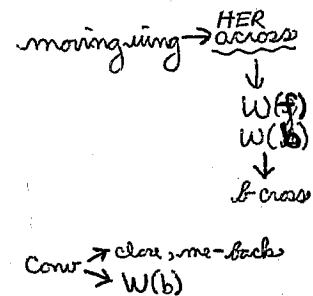 HER
moving wing → across
↓
W(f)
W(b)
↓
b-cross
Conv → close, me-back
→ W(b)